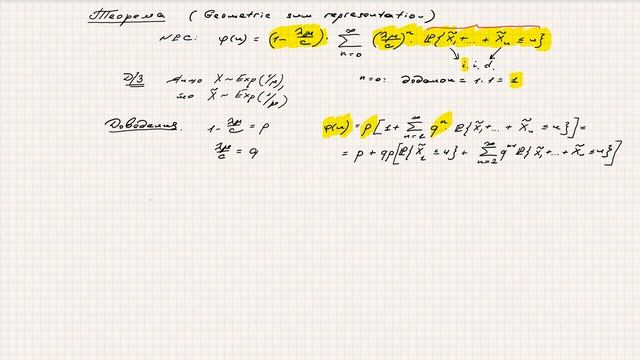 Теорема (Geometric sum representation)
NPC: φ(u) = (1 - λμ/c) · ∑_{n=0}^{∞} (λμ/c)^n · P{X̃₁ + ... + X̃ₙ ≤ u}
i. i. d.
Д/З Якщо X ~ Exp(1/μ) n=0: доданок = 1·1 = 1
то X̃ ~ Exp(1/μ)
Доведення. 1 - λμ/c = p φ(u) = p[1 + ∑_{n=1}^{∞} qⁿ · P{X̃₁ + ... + X̃ₙ ≤ u}] =
λμ/c = q = p + qp[P{X̃₁ ≤ u} + ∑_{n=2}^{∞} q^{n-1} P{X̃₁ + ... + X̃ₙ ≤ u}]